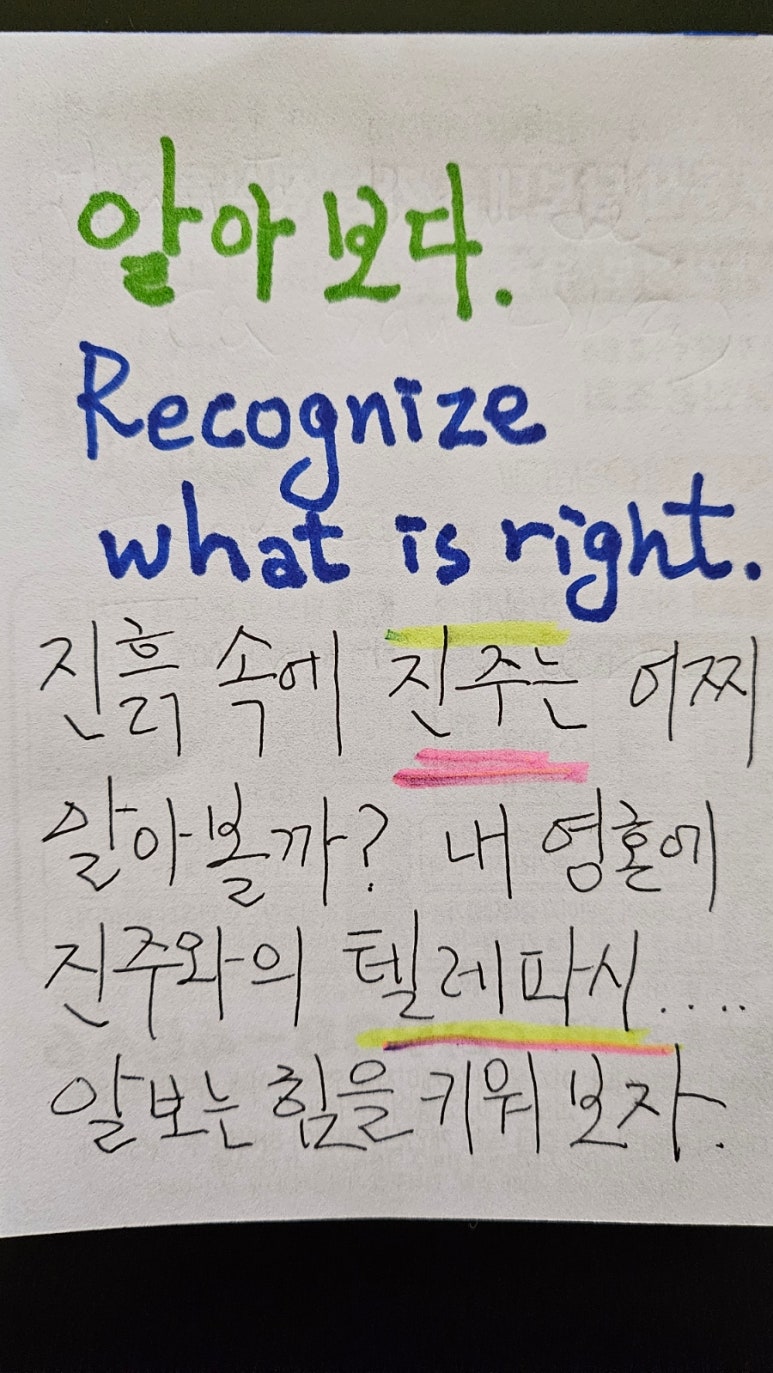 알아보다.
Recognize
what is right.
진흙 속에 진주는 어찌
알아볼까? 내 영혼에
진주와의 텔레파시....
알보는 힘을 키워 보자.